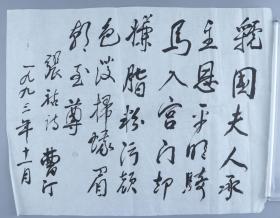 虢国夫人承
主恩平明騎
馬入宫门却
嫌脂粉污颜
色淡掃蛾眉
朝至尊
張祜诗 曹汀
一九九三年十一月